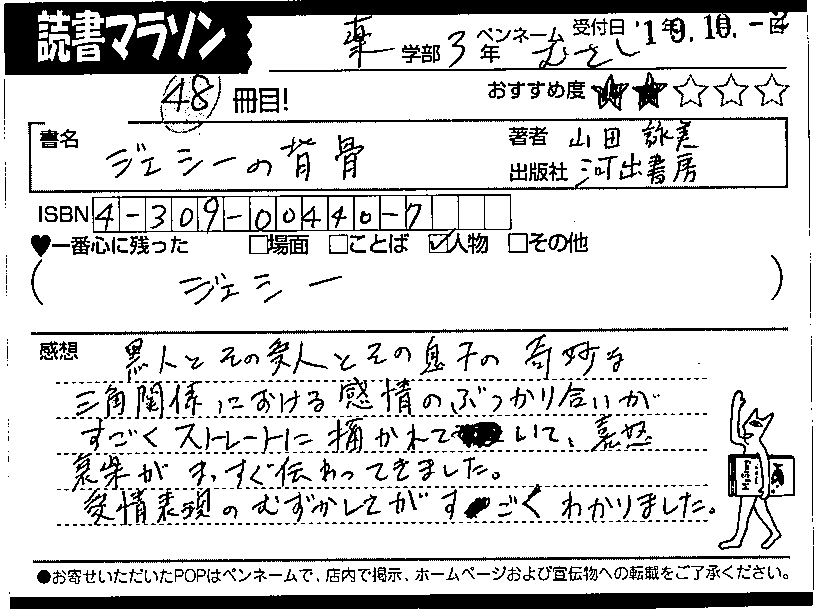 読書マラソン
薬 学部 3 年 ペンネーム むさし 受付日 '19.10.-
48 冊目! おすすめ度 ★★☆☆☆
書名 ジェシーの背骨
著者 山田詠美
出版社 河出書房
ISBN 4-309-00440-7
♥一番心に残った □場面 □ことば ☑人物 □その他
( ジェシー )
感想 黒人とその愛人とその息子の奇妙な
三角関係における感情のぶつかり合いが
すごくストレートに描かれていて、喜怒
哀楽がまっすぐ伝わってきました。
愛情表現のむずかしさがすごくわかりました。
●お寄せいただいたPOPはペンネームで、店内で掲示、ホームページおよび宣伝物への転載をご了承ください。